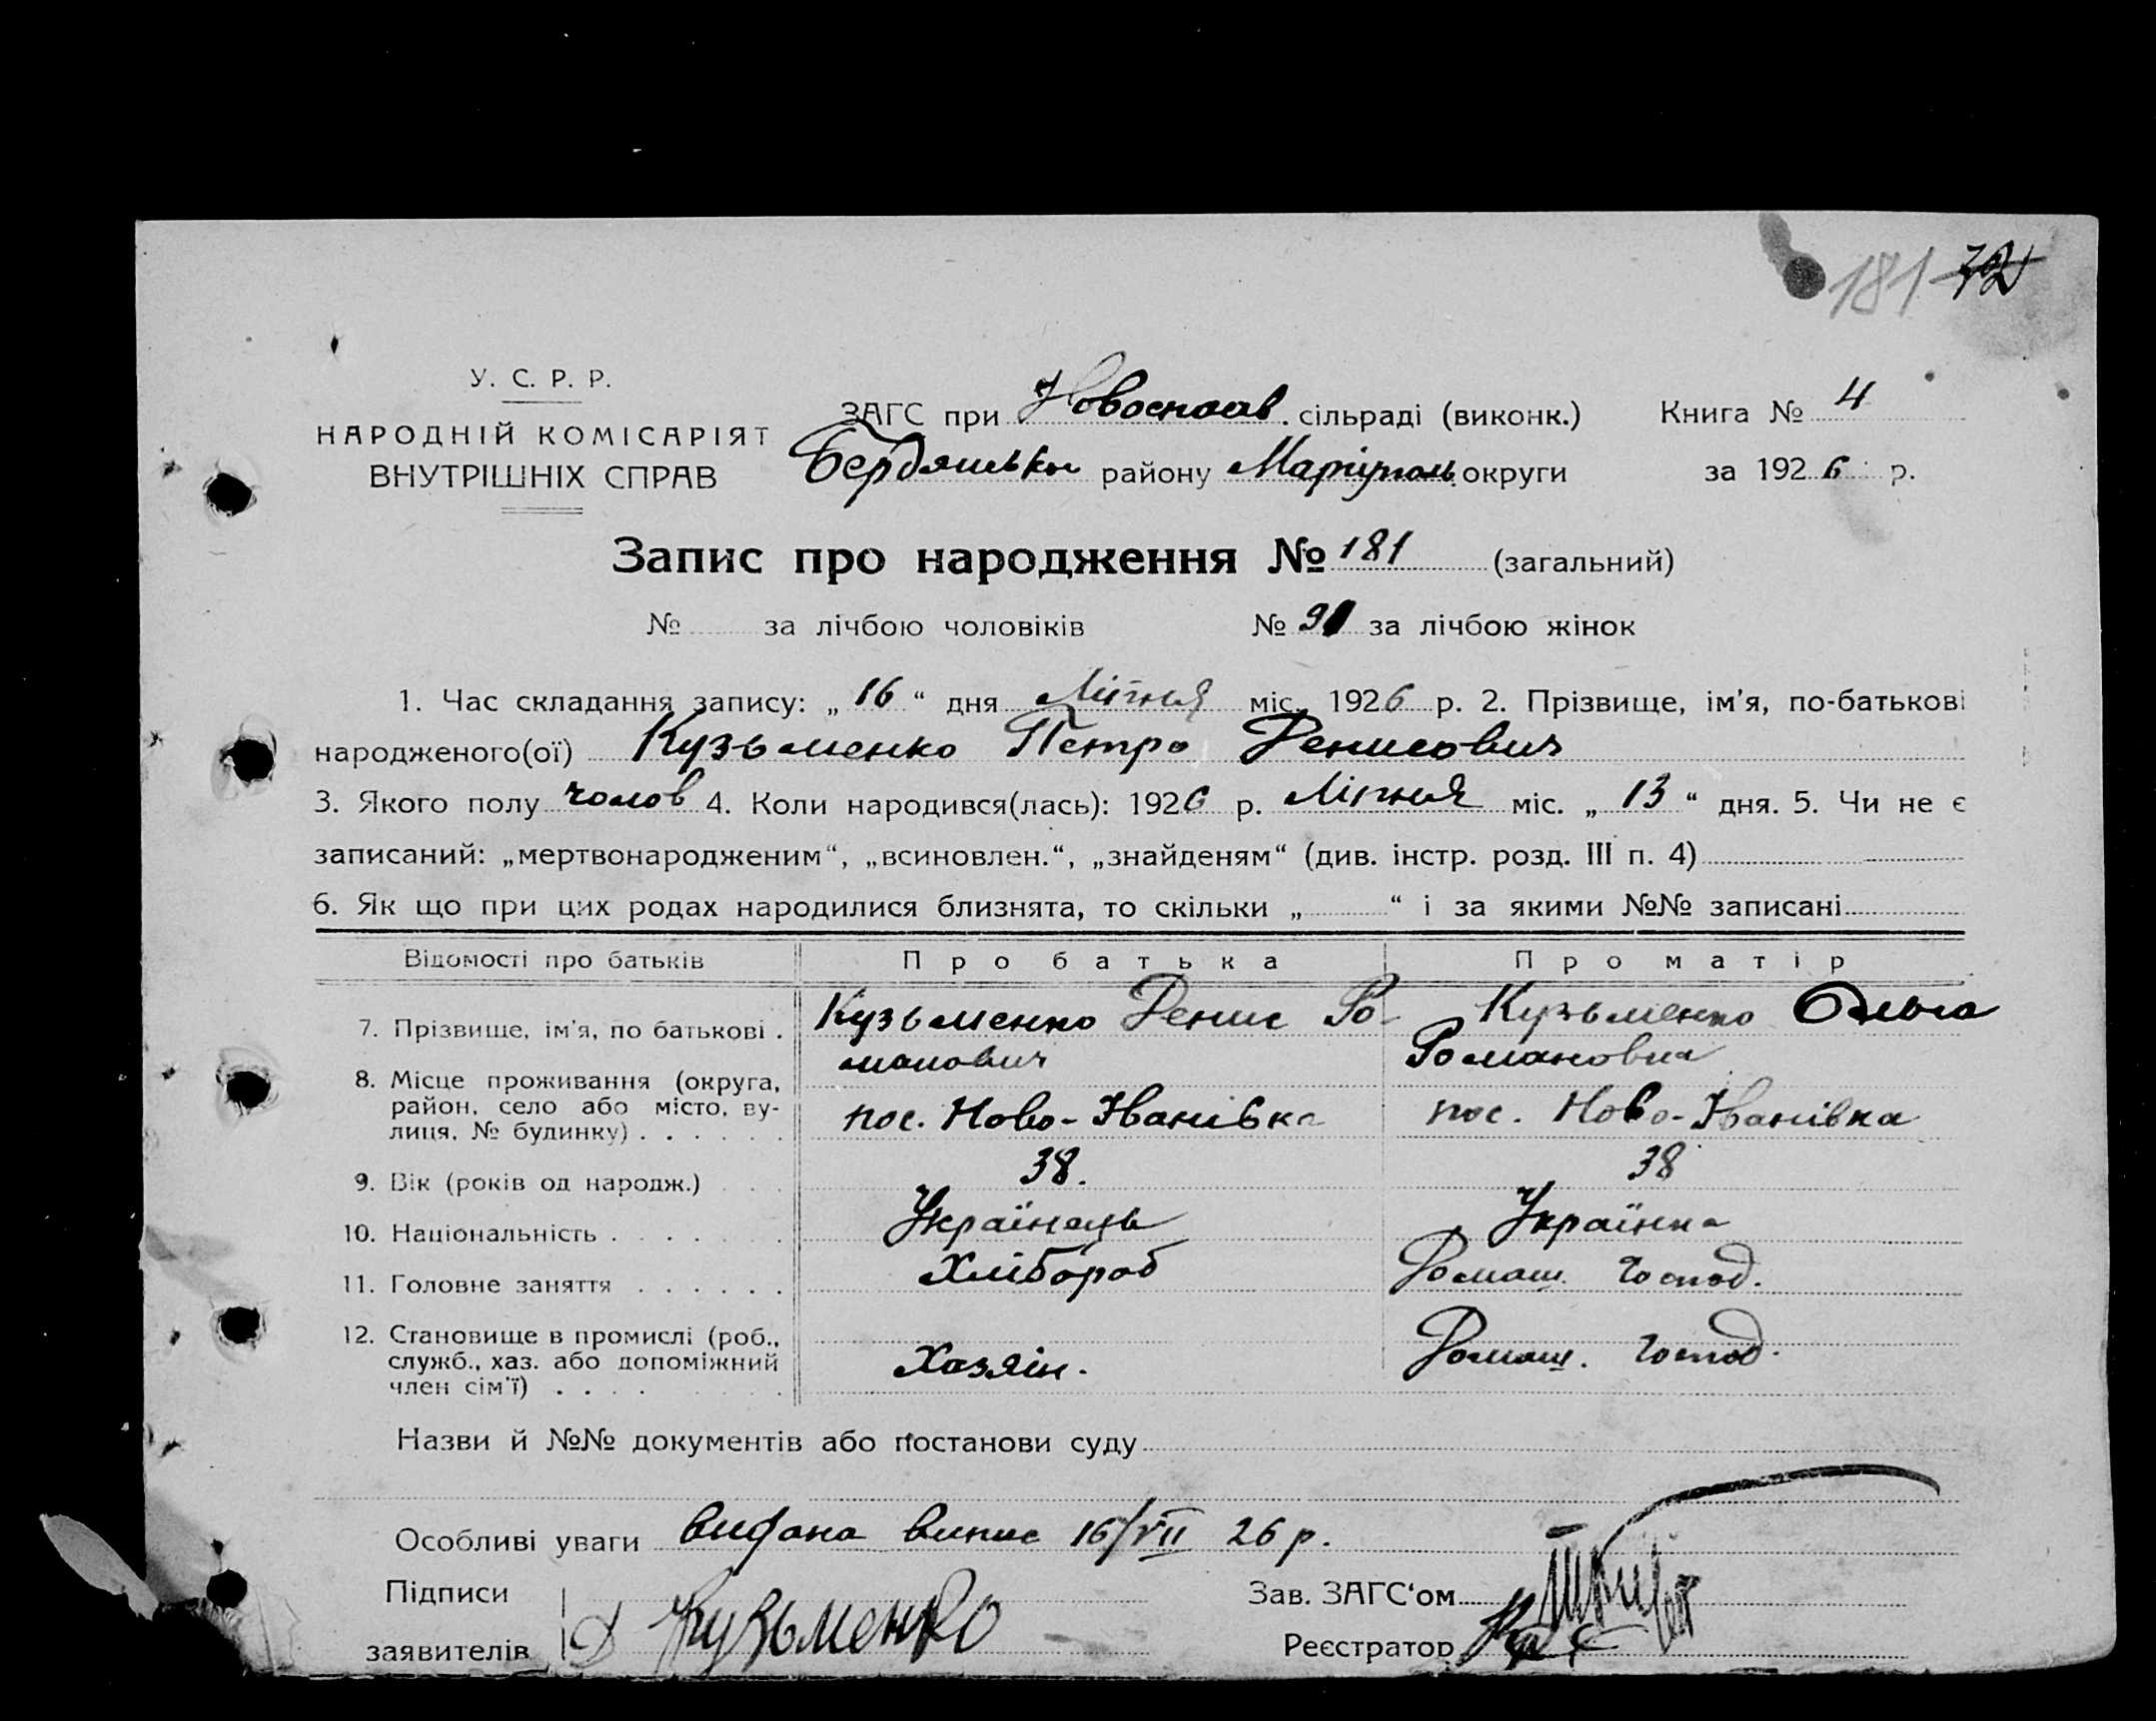 181 72
У. С. Р. Р.
НАРОДНІЙ КОМІСАРІЯТ
ВНУТРІШНІХ СПРАВ
ЗАГС при Новоспаів. сільраді (виконк.) Книга № 4
Бердянськ району Маріуполь. округи за 1926 р.
Запис про народження № 181 (загальний)
№ за лічбою чоловіків № 91 за лічбою жінок
1. Час складання запису: „16“ дня Ліпня міс. 1926 р. 2. Прізвище, ім'я, по-батькові
народженого(ої) Кузьменко Петро Денисович
3. Якого полу чолов 4. Коли народився(лась): 1926 р. Ліпня міс. „13“ дня. 5. Чи не є
записаний: „мертвонародженим“, „всиновлен.“, „знайденям“ (див. інстр. розд. III п. 4)
6. Як що при цих родах народилися близнята, то скільки „ “ і за якими №№ записані
Відомості про батьків Про батька Про матір
7. Прізвище, ім'я, по батькові . Кузьменко Денис Ро- Кузьменко Ольга
манович Романовна
8. Місце проживання (округа,
район, село або місто, ву-
лиця, № будинку) . . . . . . пос. Ново-Іванівка пос. Ново-Іванівка
9. Вік (років од народж.) . . . 38. 38
10. Національність . . . . . . . Українець Українка
11. Головне заняття . . . . . . Хлібороб Домаш. господ.
12. Становище в промислі (роб.,
служб., хаз. або допоміжний
член сім'ї) . . . . Хазяін. Домаш. господ.
Назви й №№ документів або постанови суду
Особливі уваги видана випис 16/VII 26 р.
Підписи Зав. ЗАГС'ом
заявителів Д Кузьменко Реєстратор